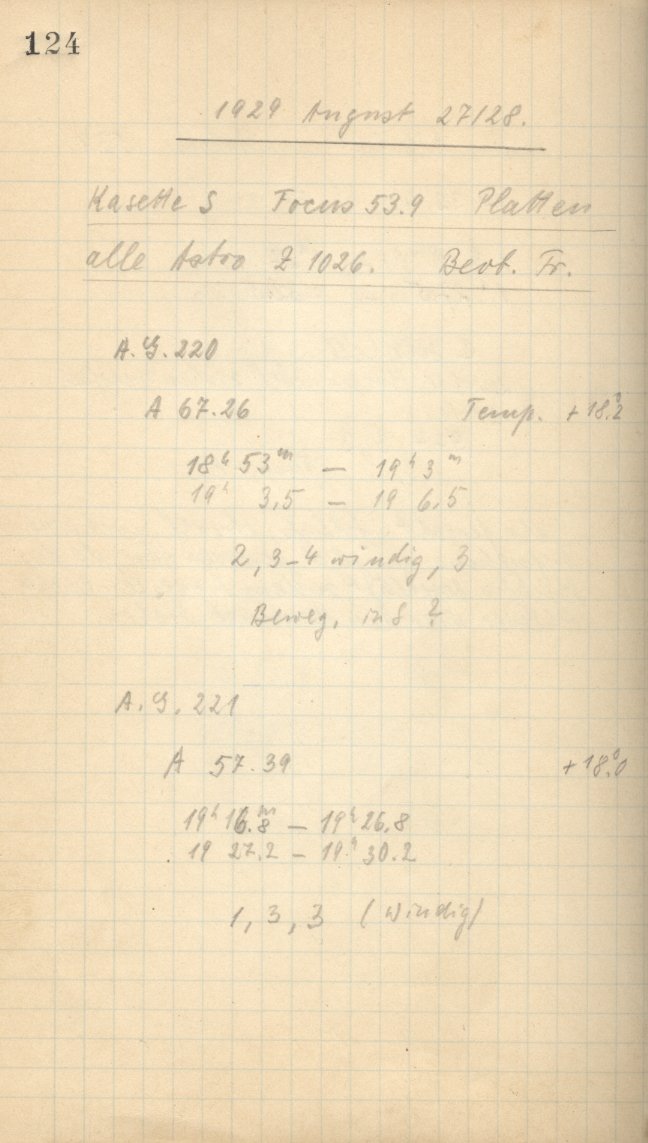 124
1929 August 27/28.
Kasette S Focus 53.9 Platten
alle Astro Z 1026. Beob. Fr.
A.G. 220
A 67.26 Temp. +18.°2
18ʰ 53ᵐ — 19ʰ 3ᵐ
19ʰ 3,5 — 19 6,5
2, 3-4 windig, 3
Beweg. in δ ?
A.G. 221
A 57.39 +18.°0
19ʰ 16.ᵐ8 — 19ʰ 26.8
19 27.2 — 19ʰ 30.2
1, 3, 3 (windig)